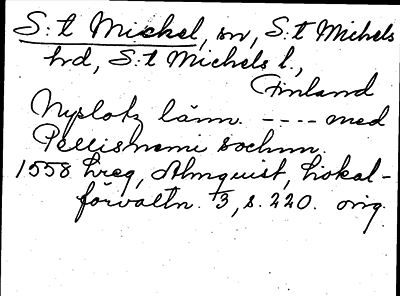 S:t Mickel, sn, S:t Michels
hrd, S:t Michels l.,
Finland
Nyslotz länn. ---- med
Pellisnemi sochnn.
1558 hreg, Almquist, Lokal-
förvaltn. 3, s. 220. orig.